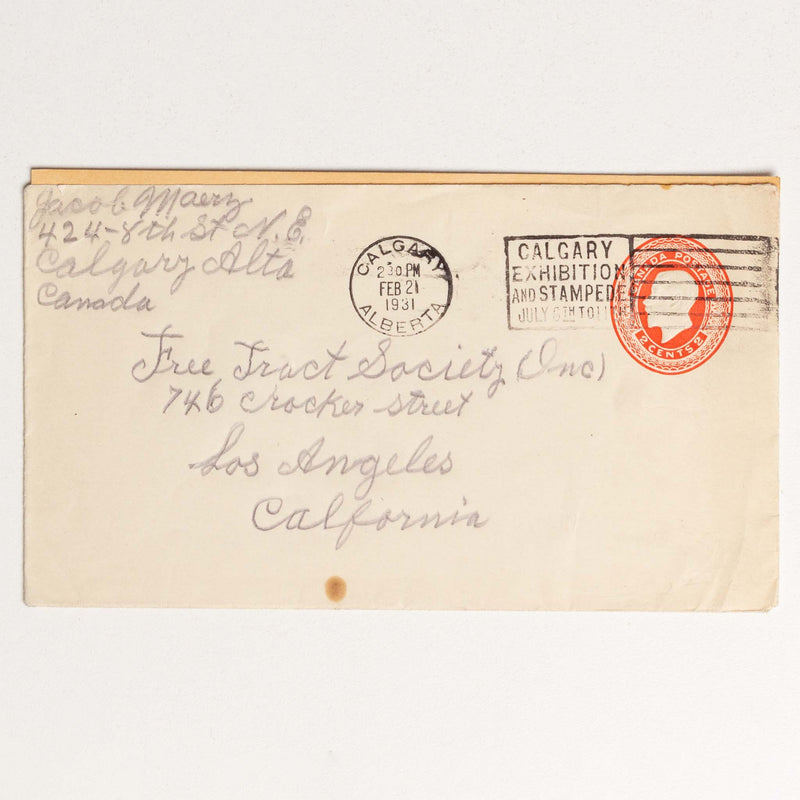 Jacob Maerz
424-8th St N.E.
Calgary Alta
Canada
CALGARY
2 30 PM
FEB 21
1931
ALBERTA
CALGARY
EXHIBITION
AND STAMPEDE
JULY 6TH TO 11TH
CANADA POSTAGE
2 CENTS 2
Free Tract Society (Inc)
746 Crocker street
Los Angeles
California